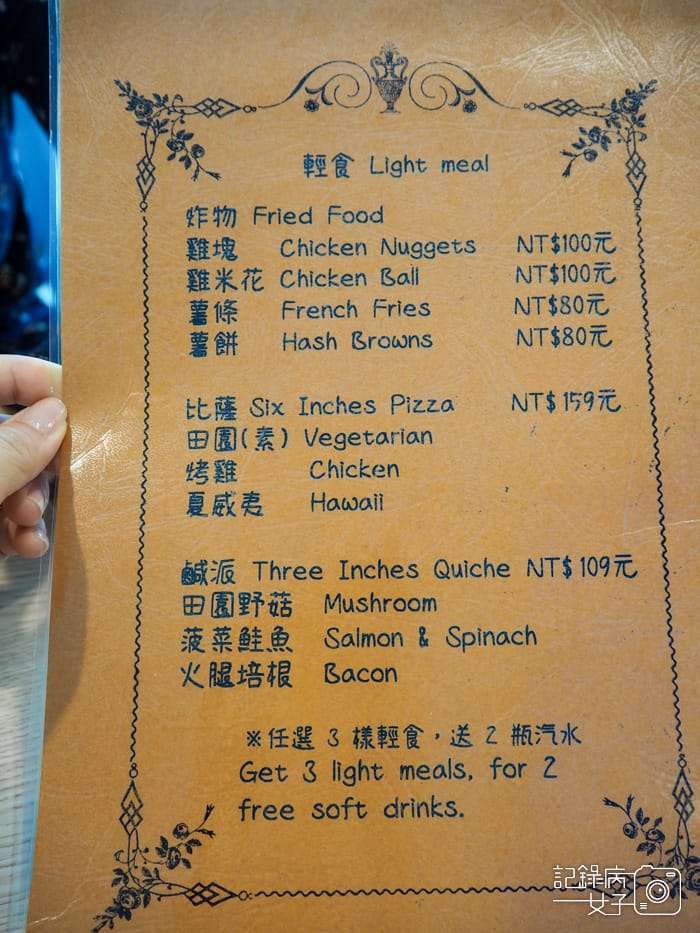 輕食 Light meal
炸物 Fried Food
雞塊 Chicken Nuggets NT$100元
雞米花 Chicken Ball NT$100元
薯條 French Fries NT$80元
薯餅 Hash Browns NT$80元
比薩 Six Inches Pizza NT$159元
田園(素) Vegetarian
烤雞 Chicken
夏威夷 Hawaii
鹹派 Three Inches Quiche NT$109元
田園野菇 Mushroom
菠菜鮭魚 Salmon & Spinach
火腿培根 Bacon
※任選 3 樣輕食，送 2 瓶汽水
Get 3 light meals, for 2
free soft drinks.
記錄病
女子